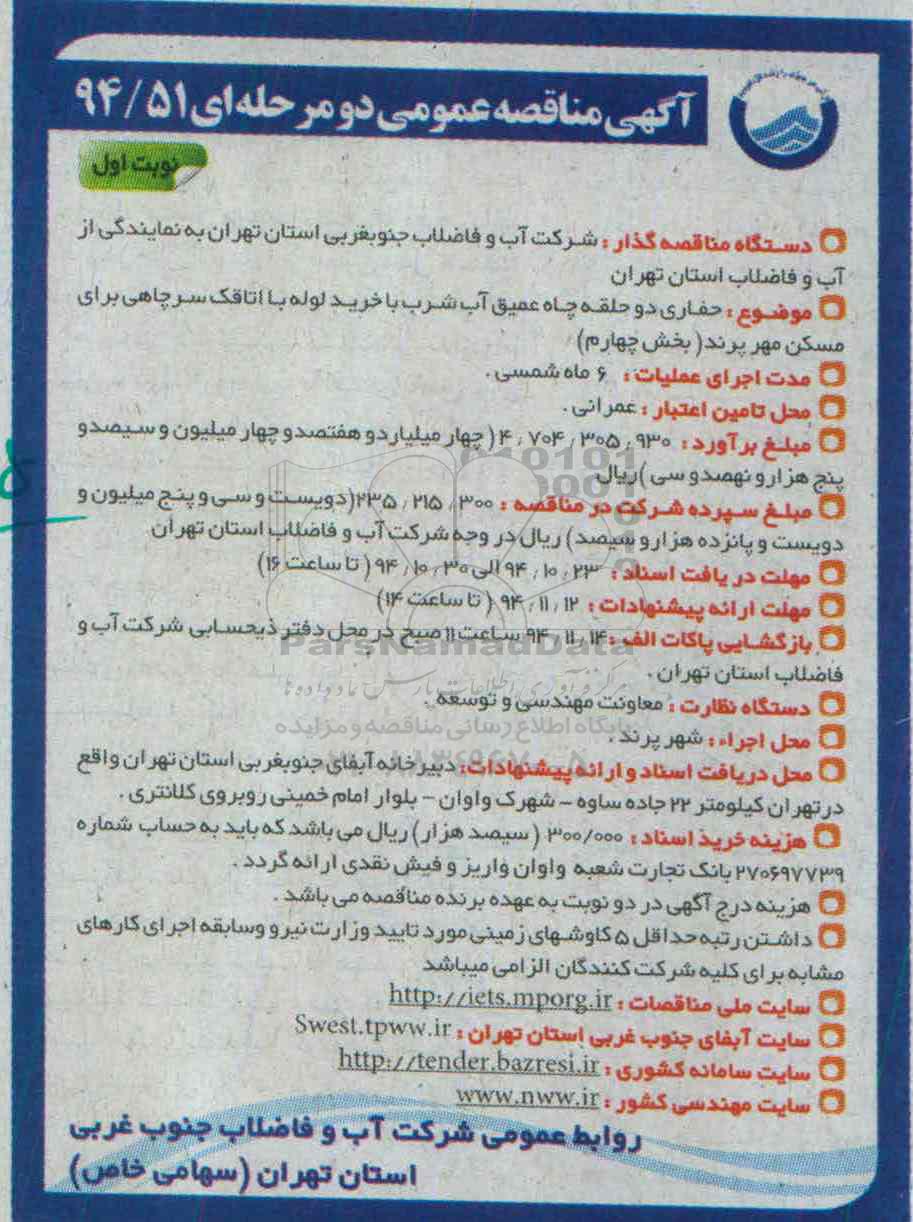 آگهی مناقصه عمومی دو مرحله ای ۹۴/۵۱
نوبت اول
دستگاه مناقصه گذار : شرکت آب و فاضلاب جنوبغربی استان تهران به نمایندگی از
آب و فاضلاب استان تهران
موضوع : حفاری دو حلقه چاه عمیق آب شرب با خرید لوله با اتاقک سرچاهی برای
مسکن مهر پرند( بخش چهارم)
مدت اجرای عملیات : ۶ ماه شمسی .
محل تامین اعتبار : عمرانی .
مبلغ برآورد : ۴٫۷۰۴٫۳۰۵٫۹۳۰ ( چهار میلیارد و هفتصد و چهار میلیون و سیصد و
پنج هزار و نهصد و سی )ریال
مبلغ سپرده شرکت در مناقصه : ۲۳۵٫۲۱۵٫۳۰۰(دویست و سی و پنج میلیون و
دویست و پانزده هزار و سیصد) ریال در وجه شرکت آب و فاضلاب استان تهران
مهلت دریافت اسناد : ۹۴٫۱۰٫۲۳ الی ۹۴٫۱۰٫۳۰ ( تا ساعت ۱۶)
مهلت ارائه پیشنهادات : ۹۴٫۱۱٫۱۲ ( تا ساعت ۱۴)
بازگشایی پاکات الف : ۹۴٫۱۱٫۱۴ ساعت ۱۱ صبح در محل دفتر ذیحسابی شرکت آب و
فاضلاب استان تهران .
ParsNamadData
مرکز فرآوری اطلاعات پارس نماد داده ها
دستگاه نظارت : معاونت مهندسی و توسعه .
پایگاه اطلاع رسانی مناقصه و مزایده
محل اجراء : شهر پرند .
محل دریافت اسناد و ارائه پیشنهادات: دبیرخانه آبفای جنوبغربی استان تهران واقع
در تهران کیلومتر ۲۲ جاده ساوه – شهرک واوان – بلوار امام خمینی روبروی کلانتری .
هزینه خرید اسناد : ۳۰۰/۰۰۰ ( سیصد هزار) ریال می باشد که باید به حساب شماره
۲۷۰۶۹۷۷۳۹ بانک تجارت شعبه واوان واریز و فیش نقدی ارائه گردد .
هزینه درج آگهی در دو نوبت به عهده برنده مناقصه می باشد .
داشتن رتبه حداقل ۵ کاوشهای زمینی مورد تایید وزارت نیرو وسابقه اجرای کارهای
مشابه برای کلیه شرکت کنندگان الزامی میباشد
سایت ملی مناقصات : http://iets.mporg.ir
سایت آبفای جنوب غربی استان تهران : Swest.tpww.ir
سایت سامانه کشوری : http://tender.bazresi.ir
سایت مهندسی کشور : www.nww.ir
روابط عمومی شرکت آب و فاضلاب جنوب غربی
استان تهران (سهامی خاص)